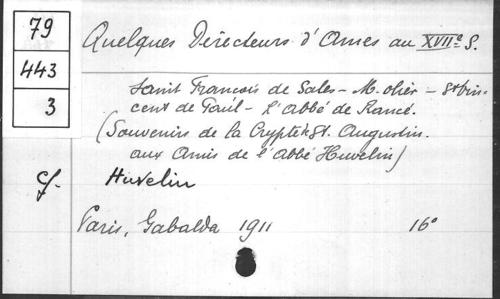 79
443
3
Quelques Directeurs d'Ames au XVIIe S.
Saint François de Sales - M. Olier - St Vin-
cent de Paul - L'Abbé de Rancé.
(Souvenirs de la Crypte St. Augustin.
aux Amis de l'Abbé Huvelin)
cf. Huvelin
Paris, Gabalda 1911 16°